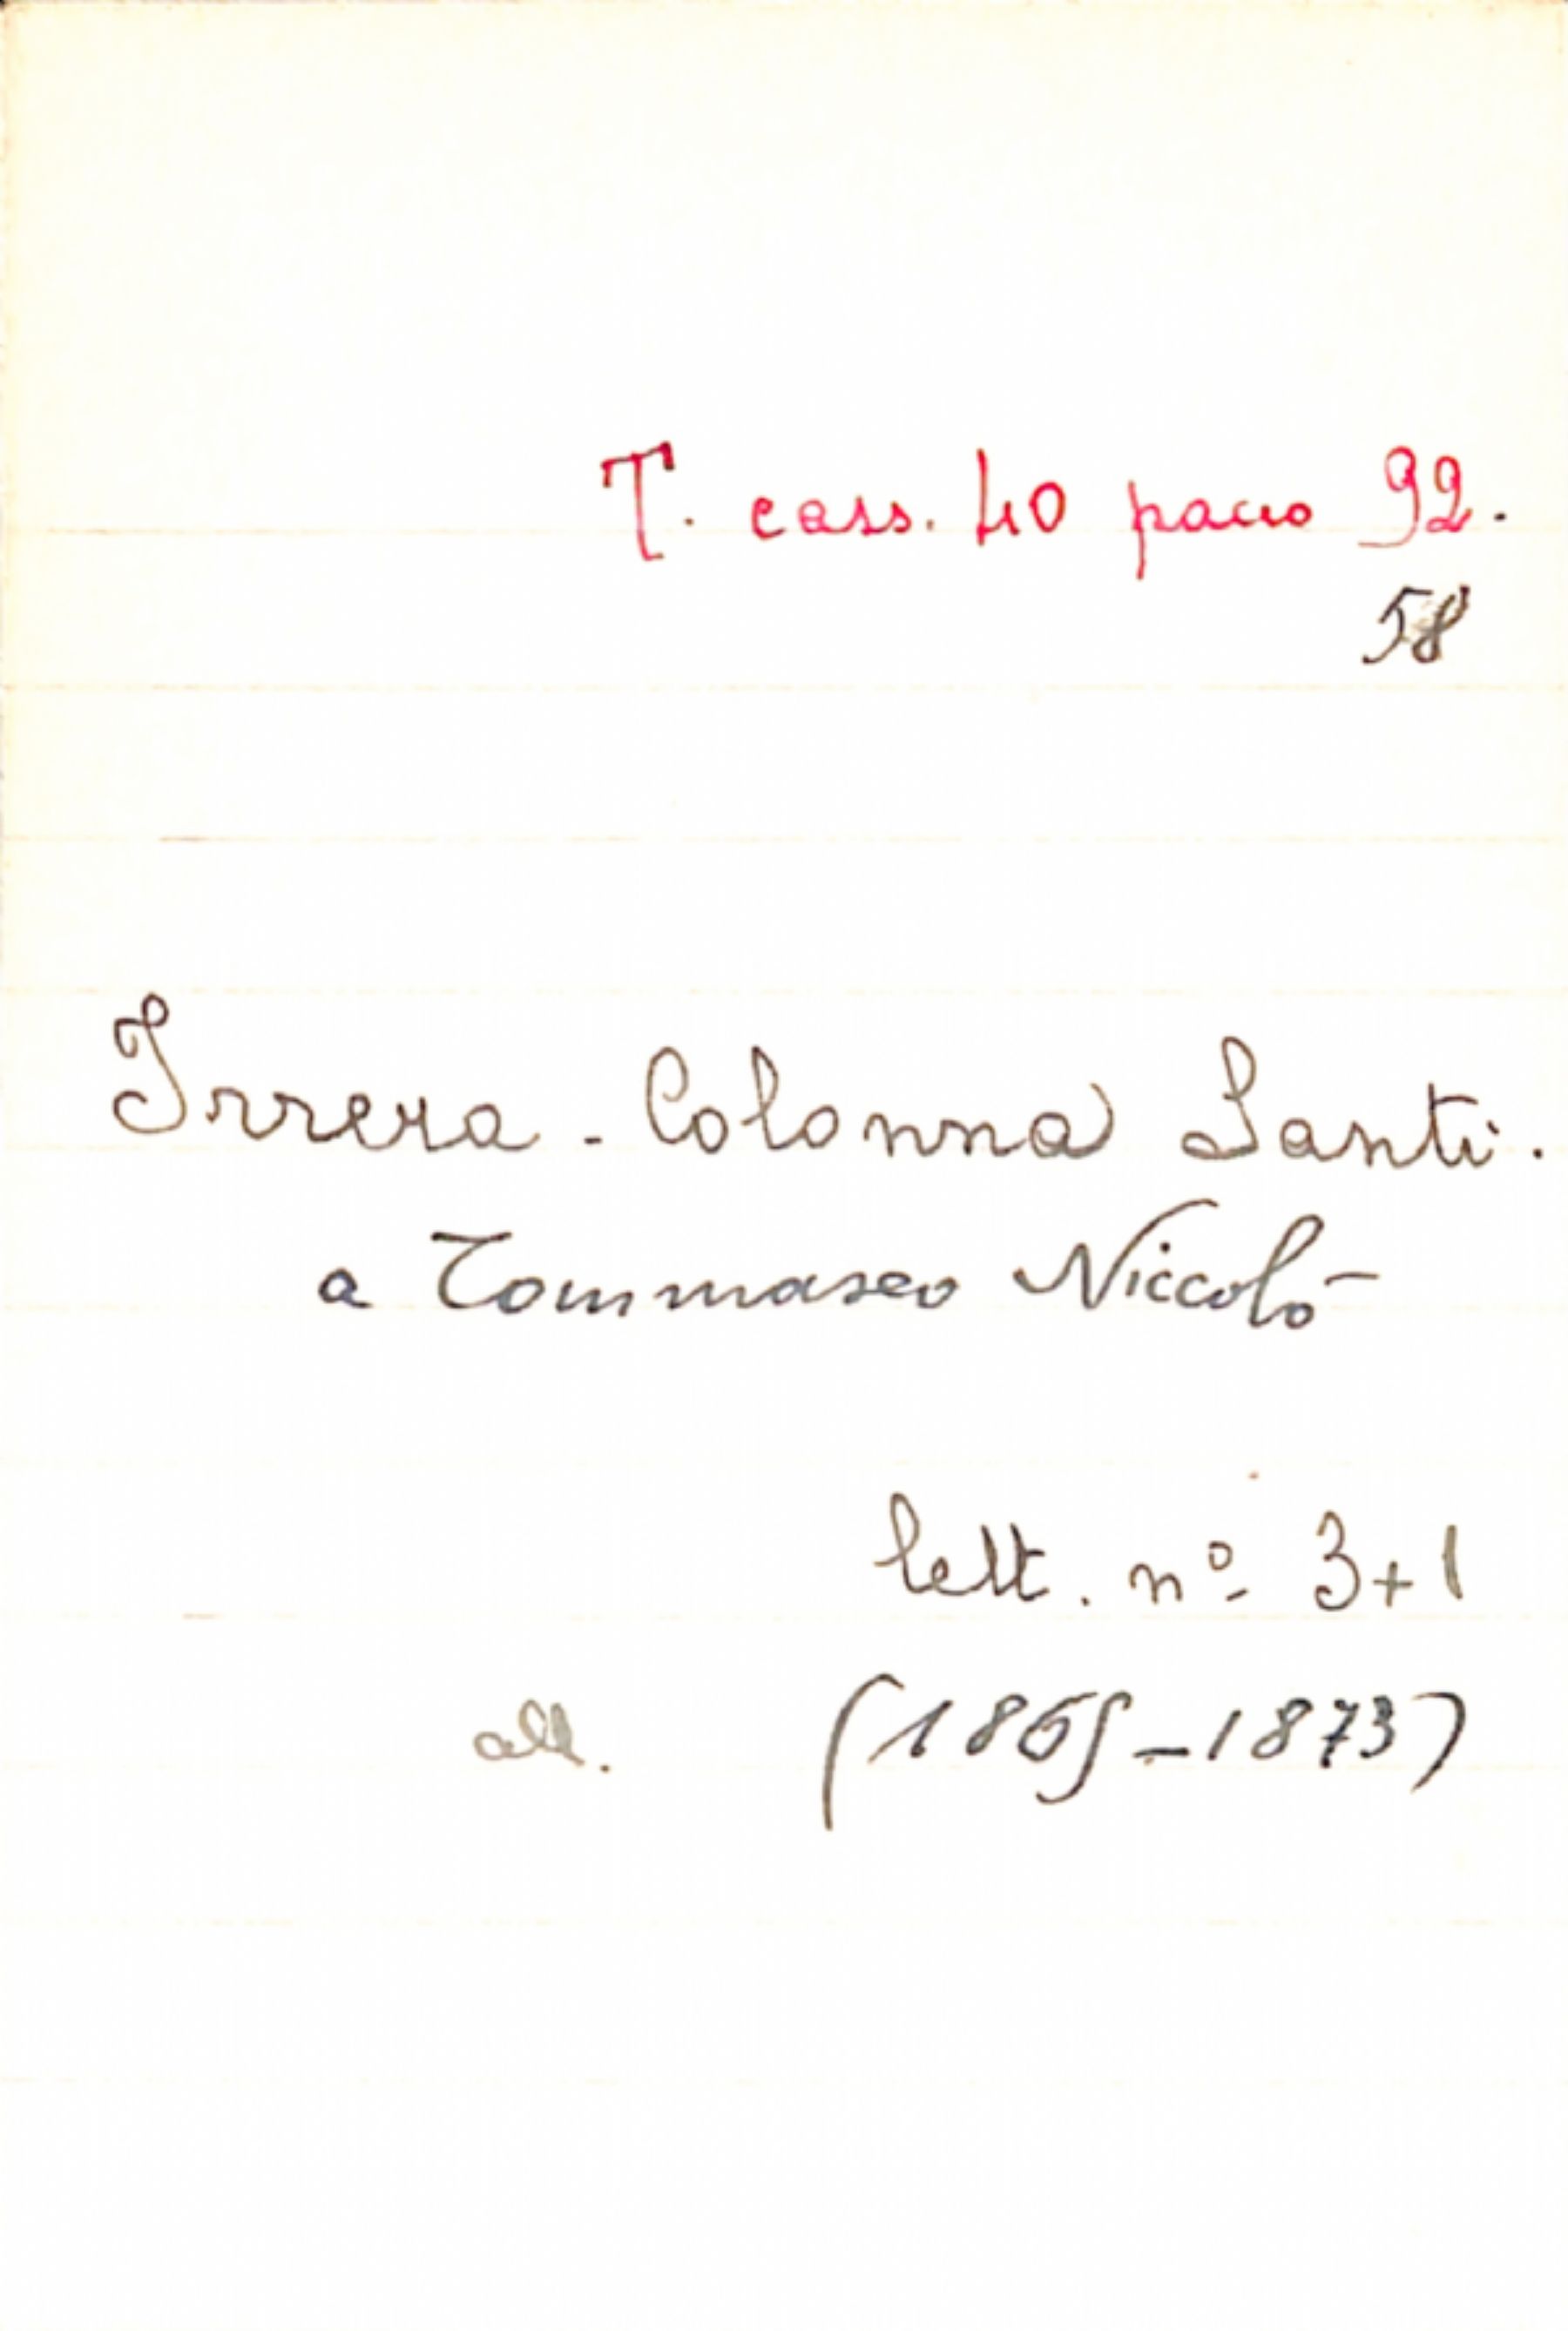 T. cass. 40 pacco 92.
58
Irrera - Colonna Santi.
a Tommaseo Niccolò
lett. nº 3+1
all. (1865-1873)